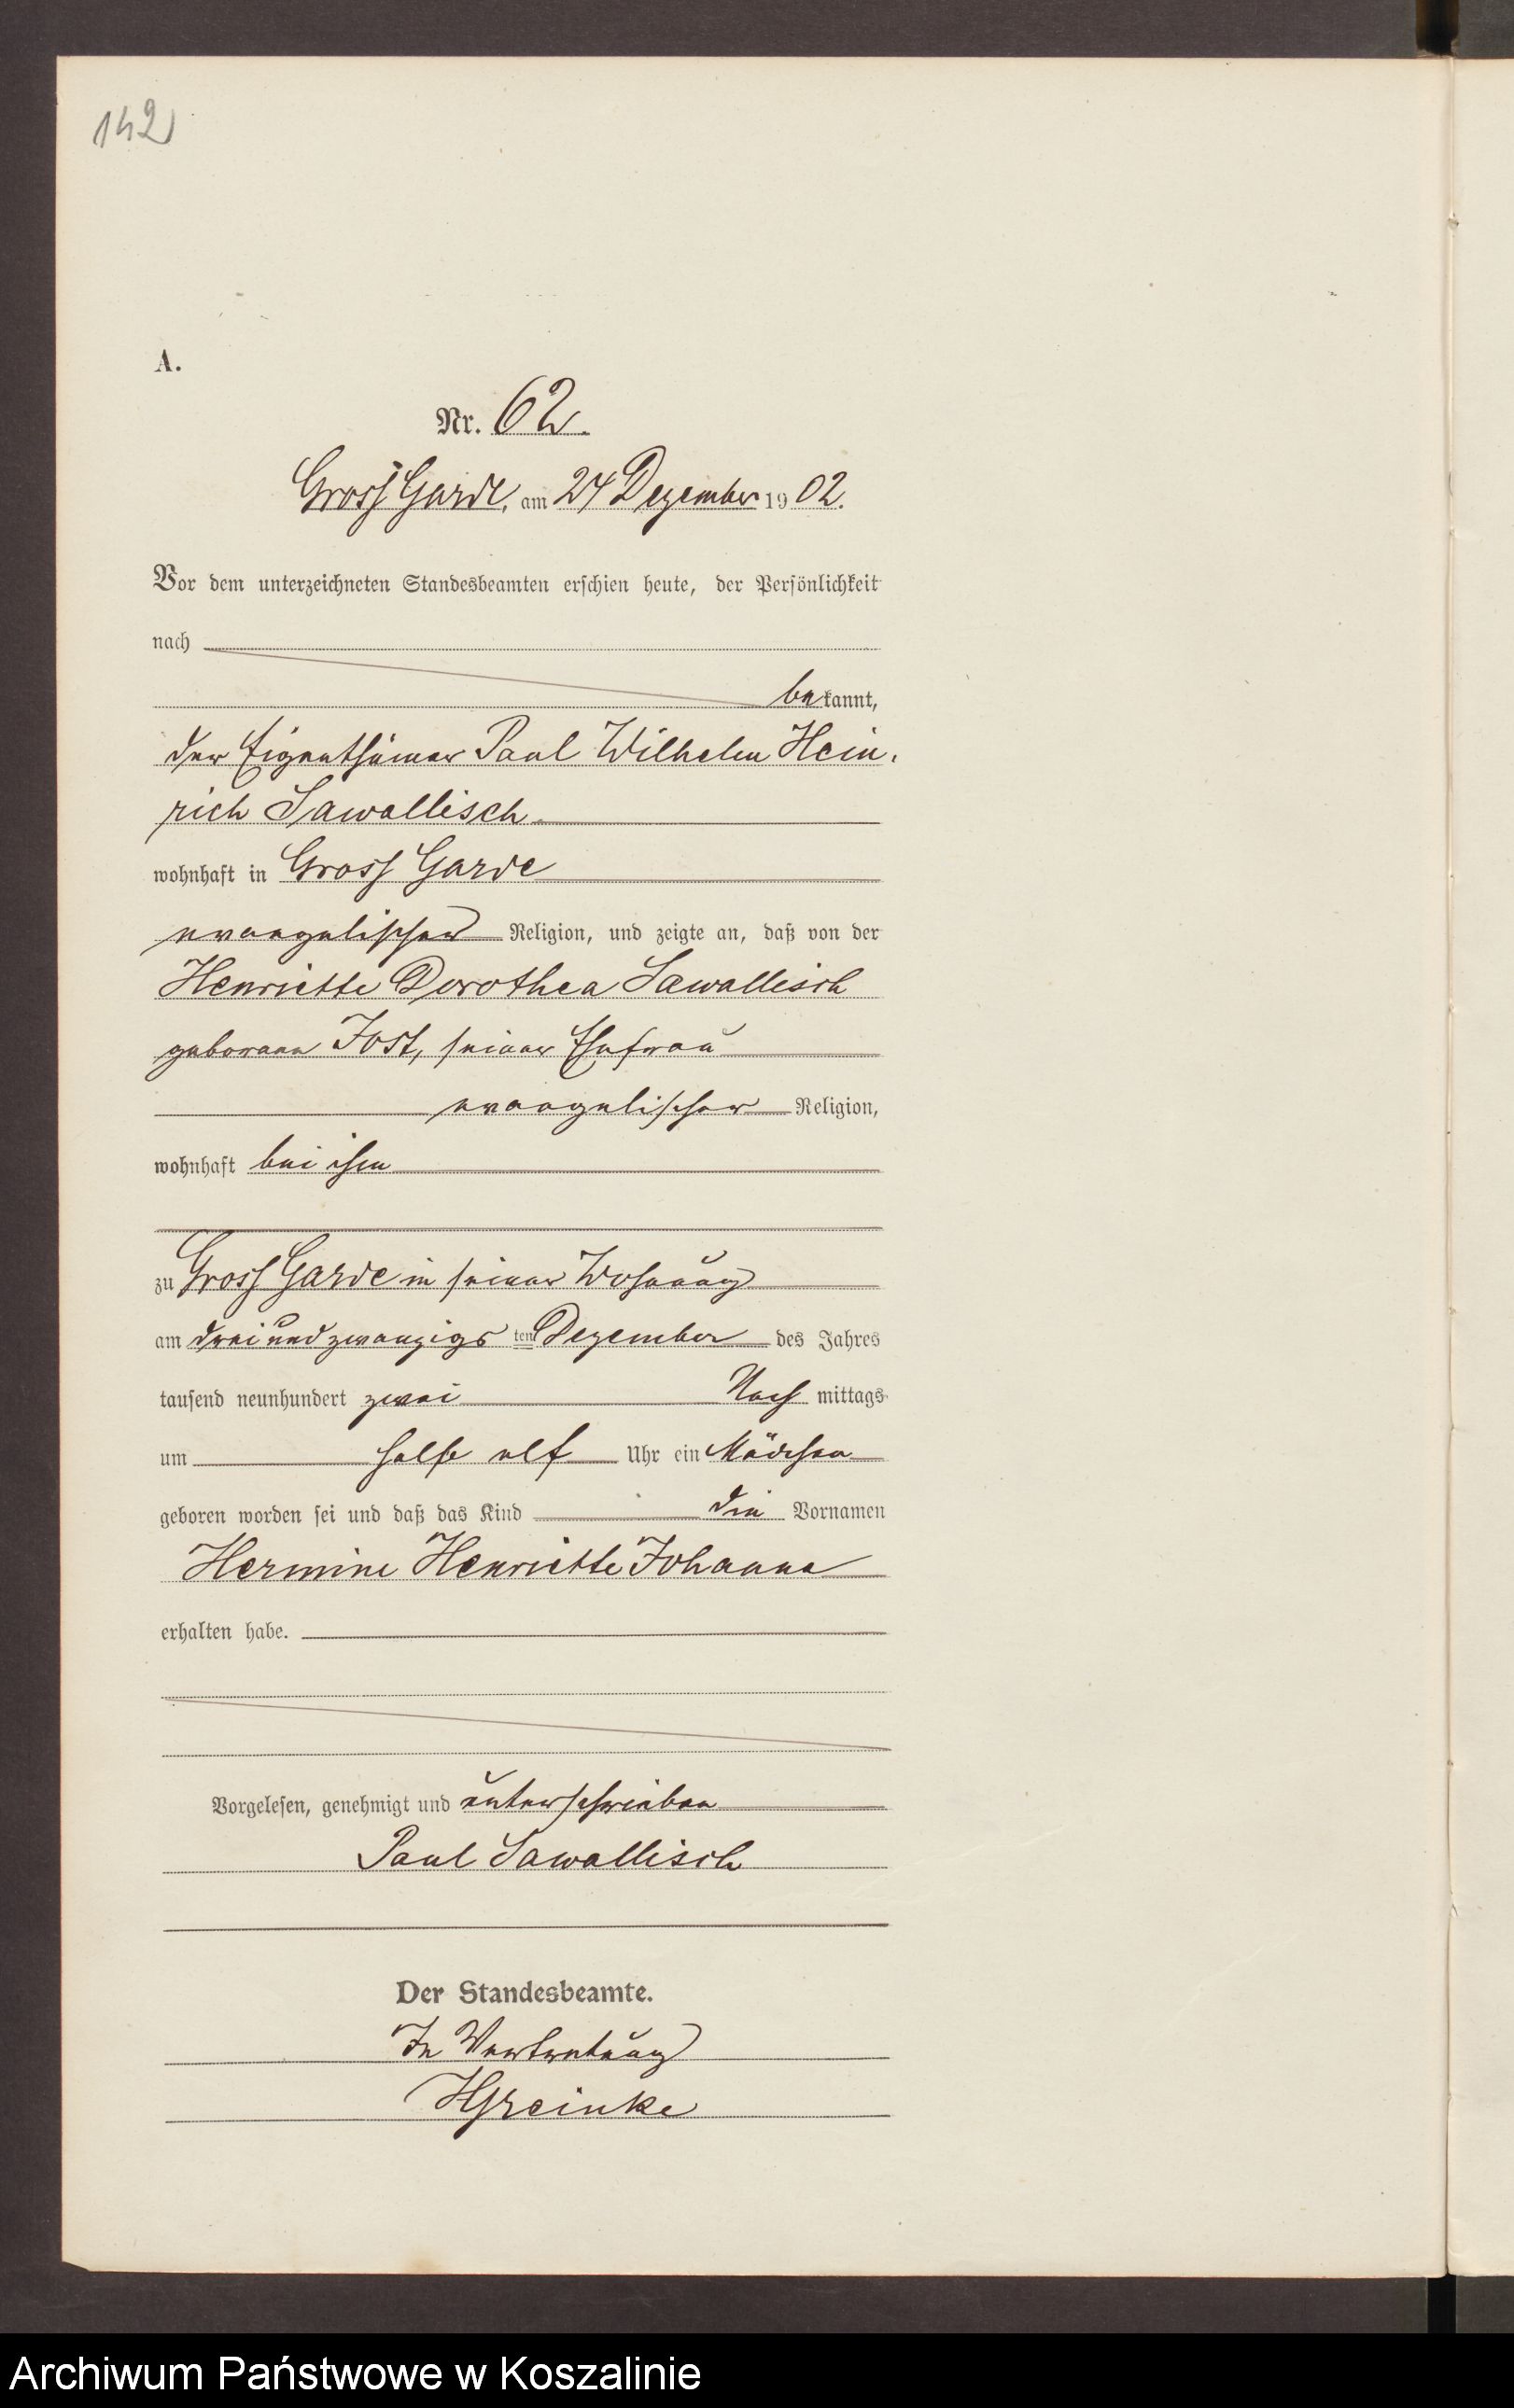 142
A.
Nr. 62.
Gross Garde, am 24 Dezember 1902.
Vor dem unterzeichneten Standesbeamten erschien heute, der Persönlichkeit
nach
bekannt,
der Eigenthümer Paul Wilhelm Hein-
rich Sawallisch
wohnhaft in Gross Garde
evangelischer Religion, und zeigte an, daß von der
Henriette Dorothea Sawallisch
geborene Jost, seiner Ehefrau
evangelischer Religion,
wohnhaft bei ihm
zu Gross Garde in seiner Wohnung
am drei und zwanzigsten Dezember des Jahres
tausend neunhundert zwei Nachmittags
um halb elf Uhr ein Mädchen
geboren worden sei und daß das Kind die Vornamen
Hermine Henriette Johanna
erhalten habe.
Vorgelesen, genehmigt und unterschrieben
Paul Sawallisch
Der Standesbeamte.
In Vertretung
Archiwum Państwowe w Koszalinie